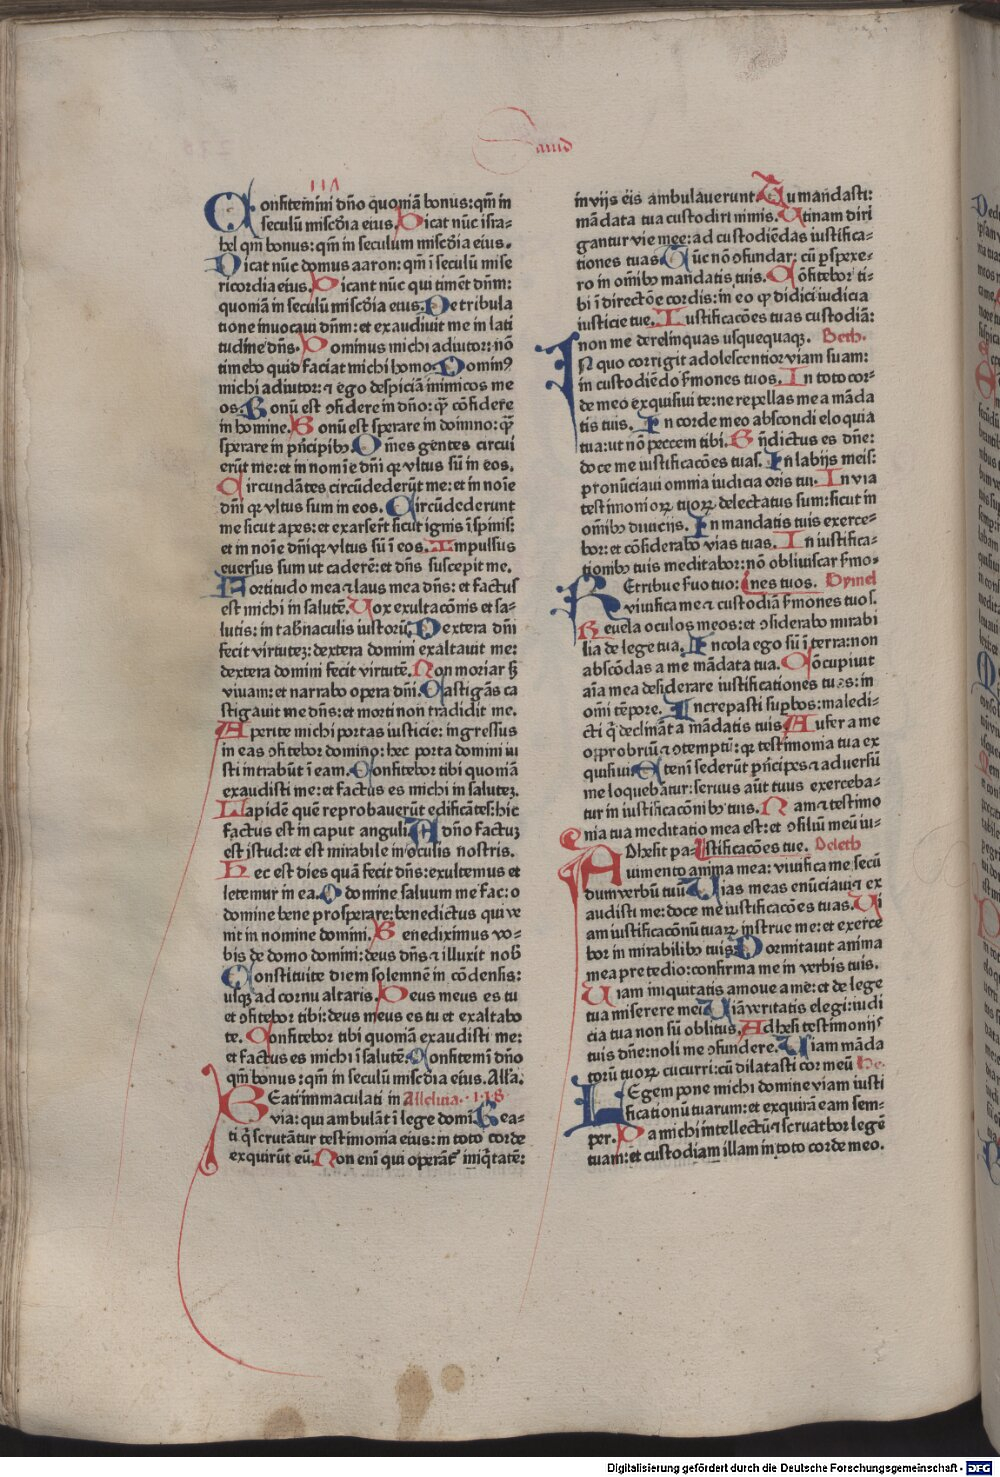 Dauid
117
Confitemini dño quoniã bonus: qm̃ in
seculũ miscd̃ia eius. Dicat nũc isra-
hel qm̃ bonus: qm̃ in seculum miscd̃ia eius.
Dicat nũc domus aaron: qm̃ ĩ seculũ mise
ricordia eius. Dicant nũc qui timẽt dñm:
quoniã in seculũ miscd̃ia eius. De tribula
tione inuocaui dñm: et exaudiuit me in lati
tudĩne dñs. Dominus michi adiutor: nõ
timebo quid faciat michi homo. Dominꝰ
michi adiutor: ⁊ ego despiciã inimicos me
os. Bonũ est ꝯfidere in dño: qᷓ cõfidere
in homine. Bonũ est sperare in domino: qᷓ
sperare in pñcipibꝫ. Omẽs gentes circui
erũt me: et in nomĩe dñi qꝛ vltus sũ in eos.
Circundãtes circũdederũt me: et in noĩe
dñi qꝛ vltus sum in eos. Circũdederunt
me sicut apes: et exarsert̃ sicut ignis ĩ spinis:
et in noĩe dñi qꝛ vltus sũ ĩ eos. Impulsus
euersus sum ut caderẽ: et dñs suscepit me.
Fortitudo mea ⁊ laus mea dñs: et factus
est michi in salutẽ. Vox exultacõnis et sa-
lutis: in tab̃naculis iustorũ. Dextera dñi
fecit virtutẽ: dextera domini exaltauit me:
dextera domini fecit virtutẽ. Non moriar sꝫ
viuam: et narrabo opera dñi. Castigãs ca
stigauit me dñs: et morti non tradidit me.
Aperite michi portas iusticie: ingressus
in eas ꝯfitebor domino: hec porta domini iu
sti intrabũt ĩ eam. Confitebor tibi quoniã
exaudisti me: et factus es michi in salutẽ.
Lapidẽ quẽ reprobauerũt edificãtes: hic
factus est in caput anguli. A dño factuꝫ
est istud: et est mirabile in oculis nostris.
Hec est dies quã fecit dñs: exultemus et
letemur in ea. O domine saluum me fac: o
domine bene prosperare: benedictus qui ve
nit in nomine domini. Benediximus vo-
bis de domo domini: deus dñs ⁊ illuxit nob̃
Constituite diem solemnẽ in cõdensis:
usqꝫ ad cornu altaris. Deus meus es tu
et ꝯfitebor tibi: deus meus es tu et exaltabo
te. Confitebor tibi quoniã exaudisti me:
et factus es michi ĩ salutẽ. Confitemĩ dño
qm̃ bonus: qm̃ in seculũ miscd̃ia eius. All̃a.
Beati immaculati in Alleluia. 118
via: qui ambulãt ĩ lege domĩ. Bea-
ti q̃ scrutãtur testimonia eius: in toto corde
exquirũt eũ. Non eni qui operãt̃ iniq̃tatẽ:
in vijs eis ambulauerunt. Tu mandasti:
mãdata tua custodiri nimis. Utinam diri
gantur vie mee: ad custodiẽdas iustifica-
tiones tuas. Tũc nõ ꝯfundar: cũ ꝑspexe-
ro in om̃ibꝫ mandatis tuis. Cõfitebor ti-
bi ĩ directõe cordis: in eo qꝙ didici iudicia
iusticie tue. Iustificacões tuas custodiã:
non me derelinquas usquequaqꝫ. Beth.
In quo corrigit adolescentior viam suam:
in custodiẽdo s̃mones tuos. In toto cor-
de meo exquisiui te: ne repellas me a mãda
tis tuis. In corde meo abscondi eloquia
tua: ut nõ peccem tibi. Bñdictus es dñe:
doce me iustificacões tuas. In labijs meis:
pronũciaui omnia iudicia oris tui. In via
testimonioꝝ tuoꝝ delectatus sum: sicut in
om̃ibꝫ diuicijs. In mandatis tuis exerce-
bor: et cõsiderabo vias tuas. In iustifica-
tionibꝫ tuis meditabor: nõ obliuiscar s̃mo-
Retribue s̃uo tuo: nes tuos. Gymel
viuifica me ⁊ custodiã s̃mones tuos.
Reuela oculos meos: et ꝯsiderabo mirabi
lia de lege tua. Incola ego sũ ĩ terra: non
abscõdas a me mãdata tua. Cõcupiuit
aĩa mea desiderare iustificationes tuas: in
om̃i tẽpore. Increpasti supbos: maledi-
cti q̃ declinãt a mãdatis tuis. Aufer a me
opprobriũ ⁊ ꝯtemptũ: qꝛ testimonia tua ex
quisiui. Etenĩ sederũt pñcipes ⁊ aduersũ
me loquebãtur: seruus aũt tuus exerceba-
tur in iustificacõnibꝫ tuis. Nam ⁊ testimo
nia tua meditatio mea est: et ꝯsiliũ meũ iu-
Adhesit pa- stificacões tue. Deleth
uimento anima mea: viuifica me secũ
dum verbũ tuũ. Uias meas enũciaui ⁊ ex
audisti me: doce me iustificacões tuas. Ui
am iustificacõnũ tuaꝝ instrue me: et exerce
bor in mirabilibꝫ tuis. Dormitauit anima
mea pre tedio: confirma me in verbis tuis.
Uiam iniquitatis amoue a me: et de lege
tua miserere mei. Uiã veritatis elegi: iudi
cia tua non sũ oblitus. Adhesi testimonijs
tuis dñe: noli me ꝯfundere. Uiam mãda
torũ tuoꝝ cucurri: cũ dilatasti cor meũ He.
Legem pone michi domine viam iusti
ficationũ tuarum: et exquirã eam sem-
per. Da michi intellectũ ⁊ scruatbor legẽ
tuam: et custodiam illam in toto corde meo.
Digitalisierung gefördert durch die Deutsche Forschungsgemeinschaft - DFG